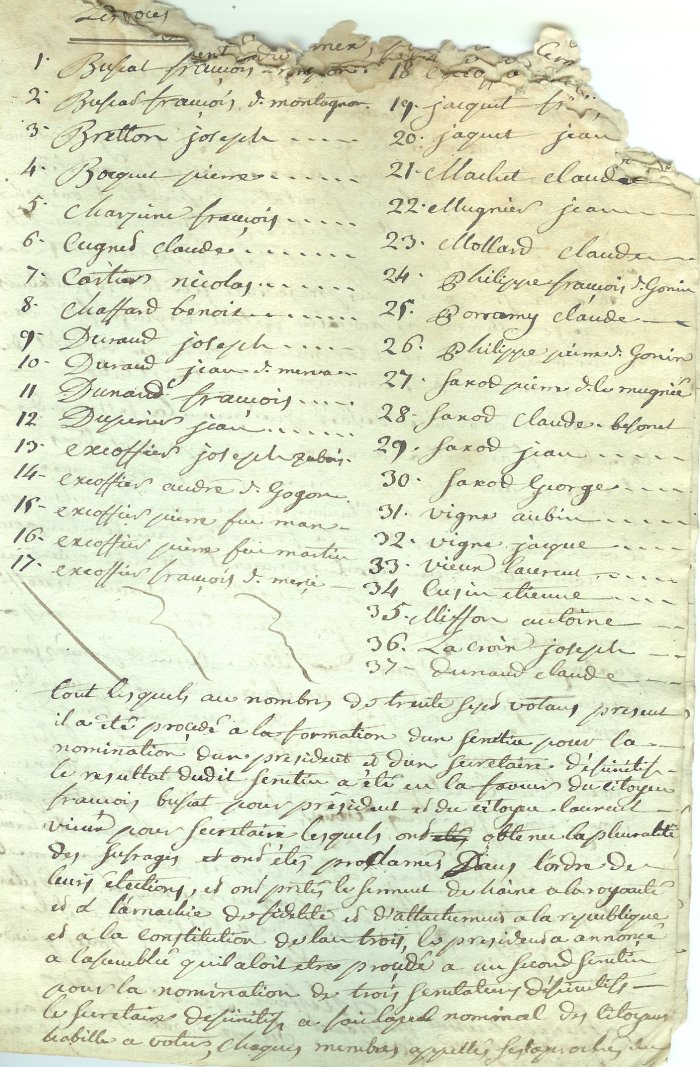 1. Busiat françois
2. Busiat françois d. montagnor.
3. Bretton joseph
4. Bocquet pierre
5. Charriere françois
6. Cugnet claude
7. Cartier nicolas
8. Chaffard benoit
9. Durand joseph
10. Durand jean d.
11 Dunand françois
12 Duperier jean
13. excoffier joseph
14. excoffier andré d. Gogon
15. excoffier pierre feu
16. excoffier pierre feu martin
17. excoffier françois d.
18
19. jacquet
20. jaquet jean
21. Machet claude
22. Mugnier jean
23. Mollard claude
24. Philippe francois d. Gonin
25. claude
26. Philippe pierre d. Gonin
27. Saxod pierre d. la mugnié
28. Saxod claude. besonet
29. Saxod jean
30. Saxod George
31. vigne aubin
32. vigne jacque
33. vieux laurent
34 Cusin etienne
35. Miffon antoine
36. La croix joseph
37- Dunand claude
tout lesquels au nombres de trente sept votans present
il a été procédé a la formation dun scrutin pour la
nomination d'un president et d'un secretaire définitif-
le resultat dudit scrutin a été en la faveur du citoyen
francois busiat pour président et du citoyen laurent
vieux pour secretaire lesquels ont obtenu la pleuralité
des sufrages et ont étés proclamés Dans l'ordre de
leurs élections, et ont prétés le serment de haine a la royauté
et a l'arnachie de fidelité et d'attachement a la republique
et a la constitution de l'an trois, le president a annoncé
a lasemblée quil aloit etre procédé a un second scrutin
pour la nomination de trois scrutateurs définitifs
le secretaire définitif, a fait lapel nominal des citoyens
habille a voter, chaques membres appellés